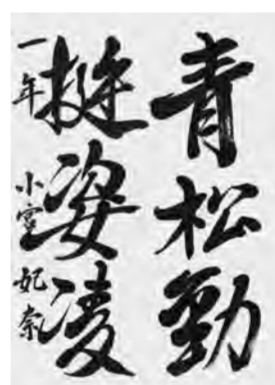 青松勁
挺姿凌
一年 小宮妃奈